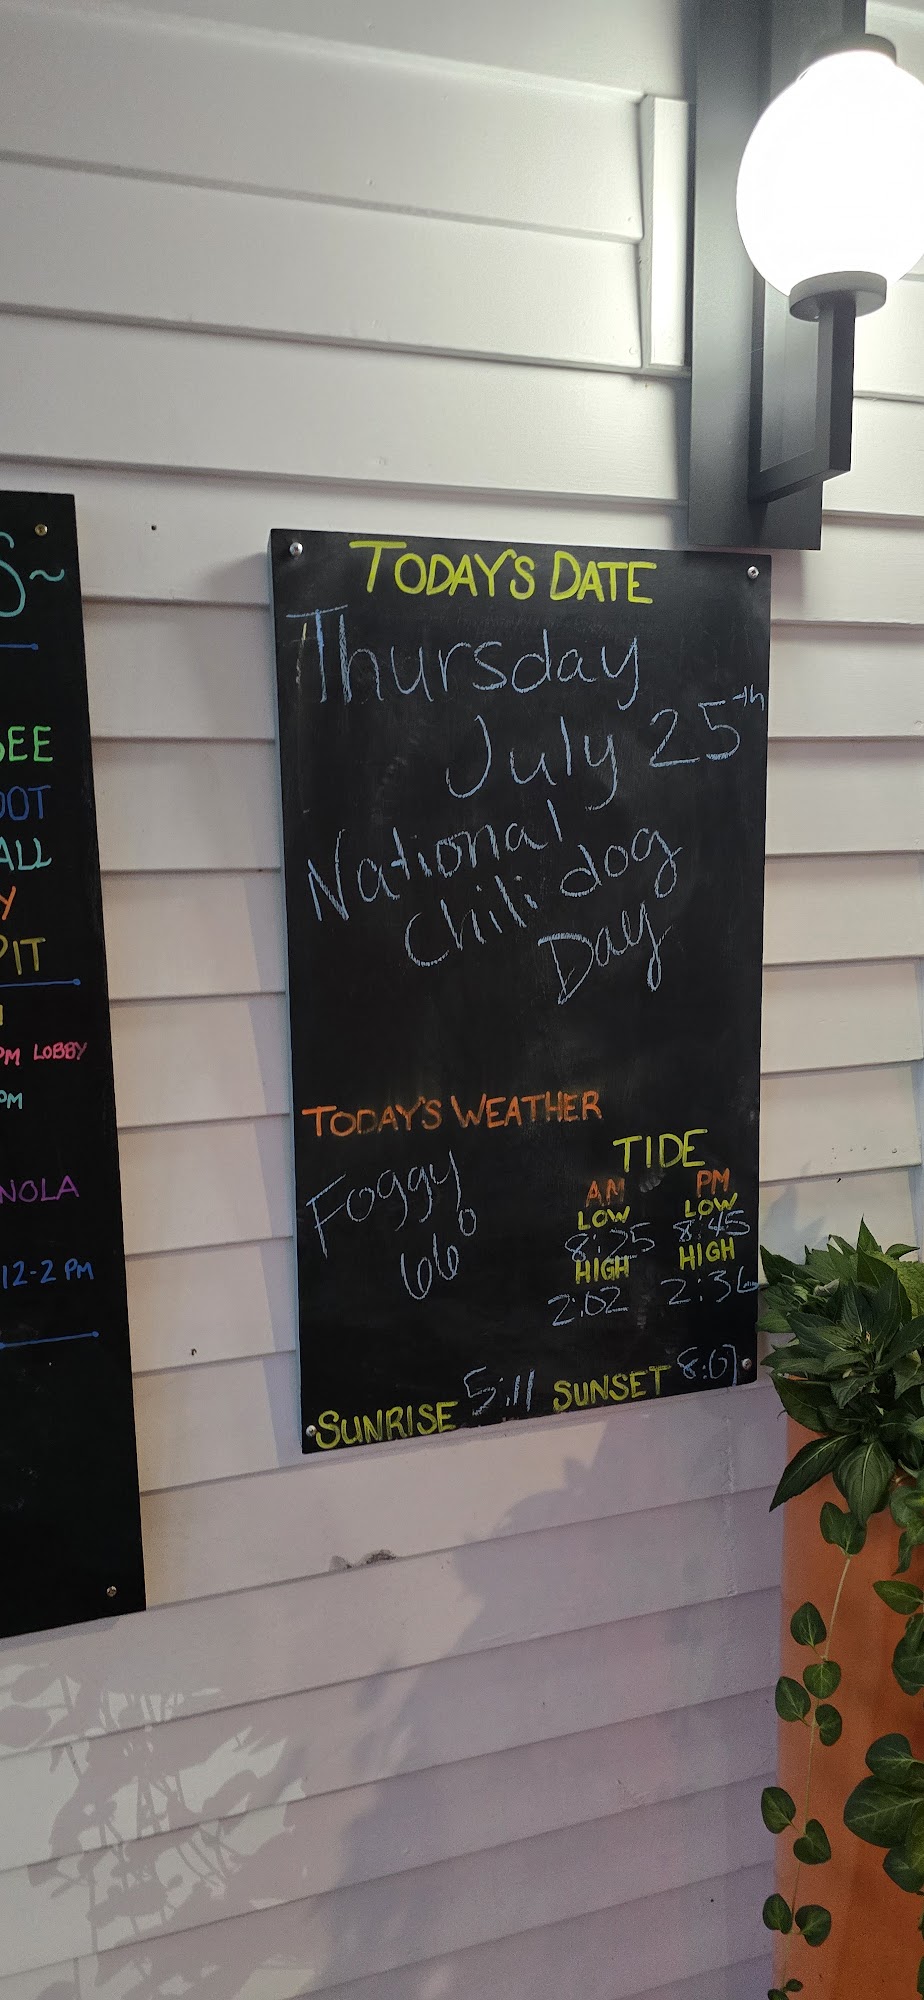 S~
EE
OOT
ALL
Y
PIT
PM LOBBY
PM
NOLA
12-2 PM
TODAY'S DATE
Thursday
July 25th
National
Chili dog
Day
TODAY'S WEATHER
Foggy
66°
TIDE
AM PM
LOW LOW
8:25 8:45
HIGH HIGH
2:02 2:36
SUNRISE 5:11 SUNSET 8:07